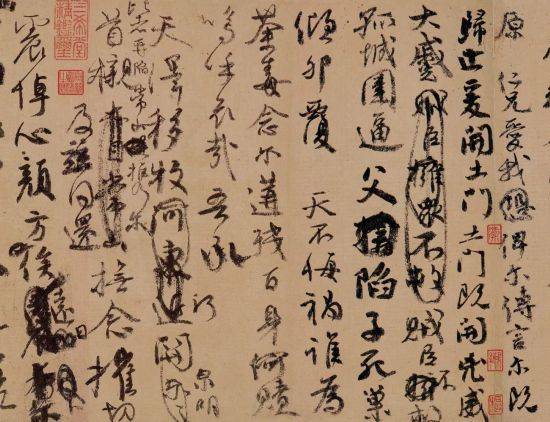 原仁兄愛我俾爾傳言爾既
歸止爰開土門土門既開凶威
大蹙賊臣擁眾不救賊臣不救
孤城圍逼父陷子死巢
傾卵覆天不悔禍誰為
荼毒念爾遘殘百身何贖
嗚呼哀哉吾承
天澤移牧河東近河關
泉明
比者再陷常山攜爾
首櫬及茲同還撫念摧切
震悼心顏方俟遠日